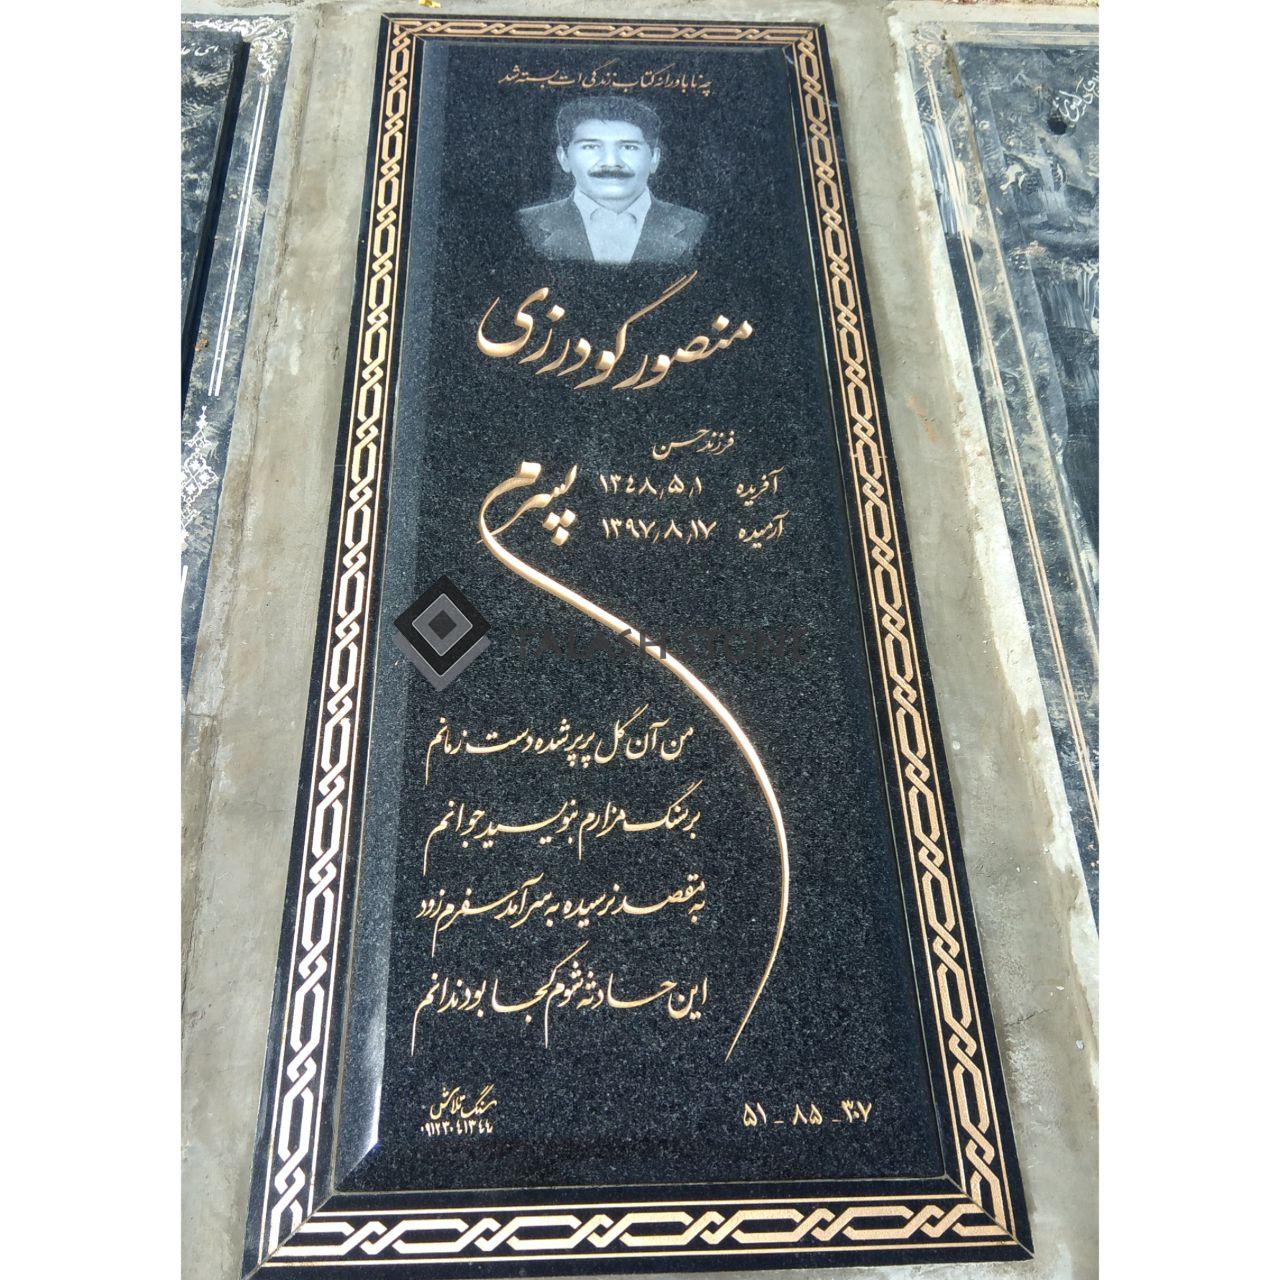 چه ناباورانه کتاب زندگی ات بسته شد
منصور گودرزی
فرزند حسن
آفریده ۱۳۴۸٫۵٫۱
آرمیده ۱۳۹۷٫۸٫۱۷
پسرم
TALASH STONE
من آن گل پرپر شده دست زمانم
بر سنگ مزارم بنویسید جوانم
به مقصد نرسیده به سر آمد سفرم زود
این حادثه شوم کجا بود ندانم
سنگ تلاش
۰۹۱۲۳۰۴۱۳۴۴
۵۱ - ۸۵ - ۳۰۷